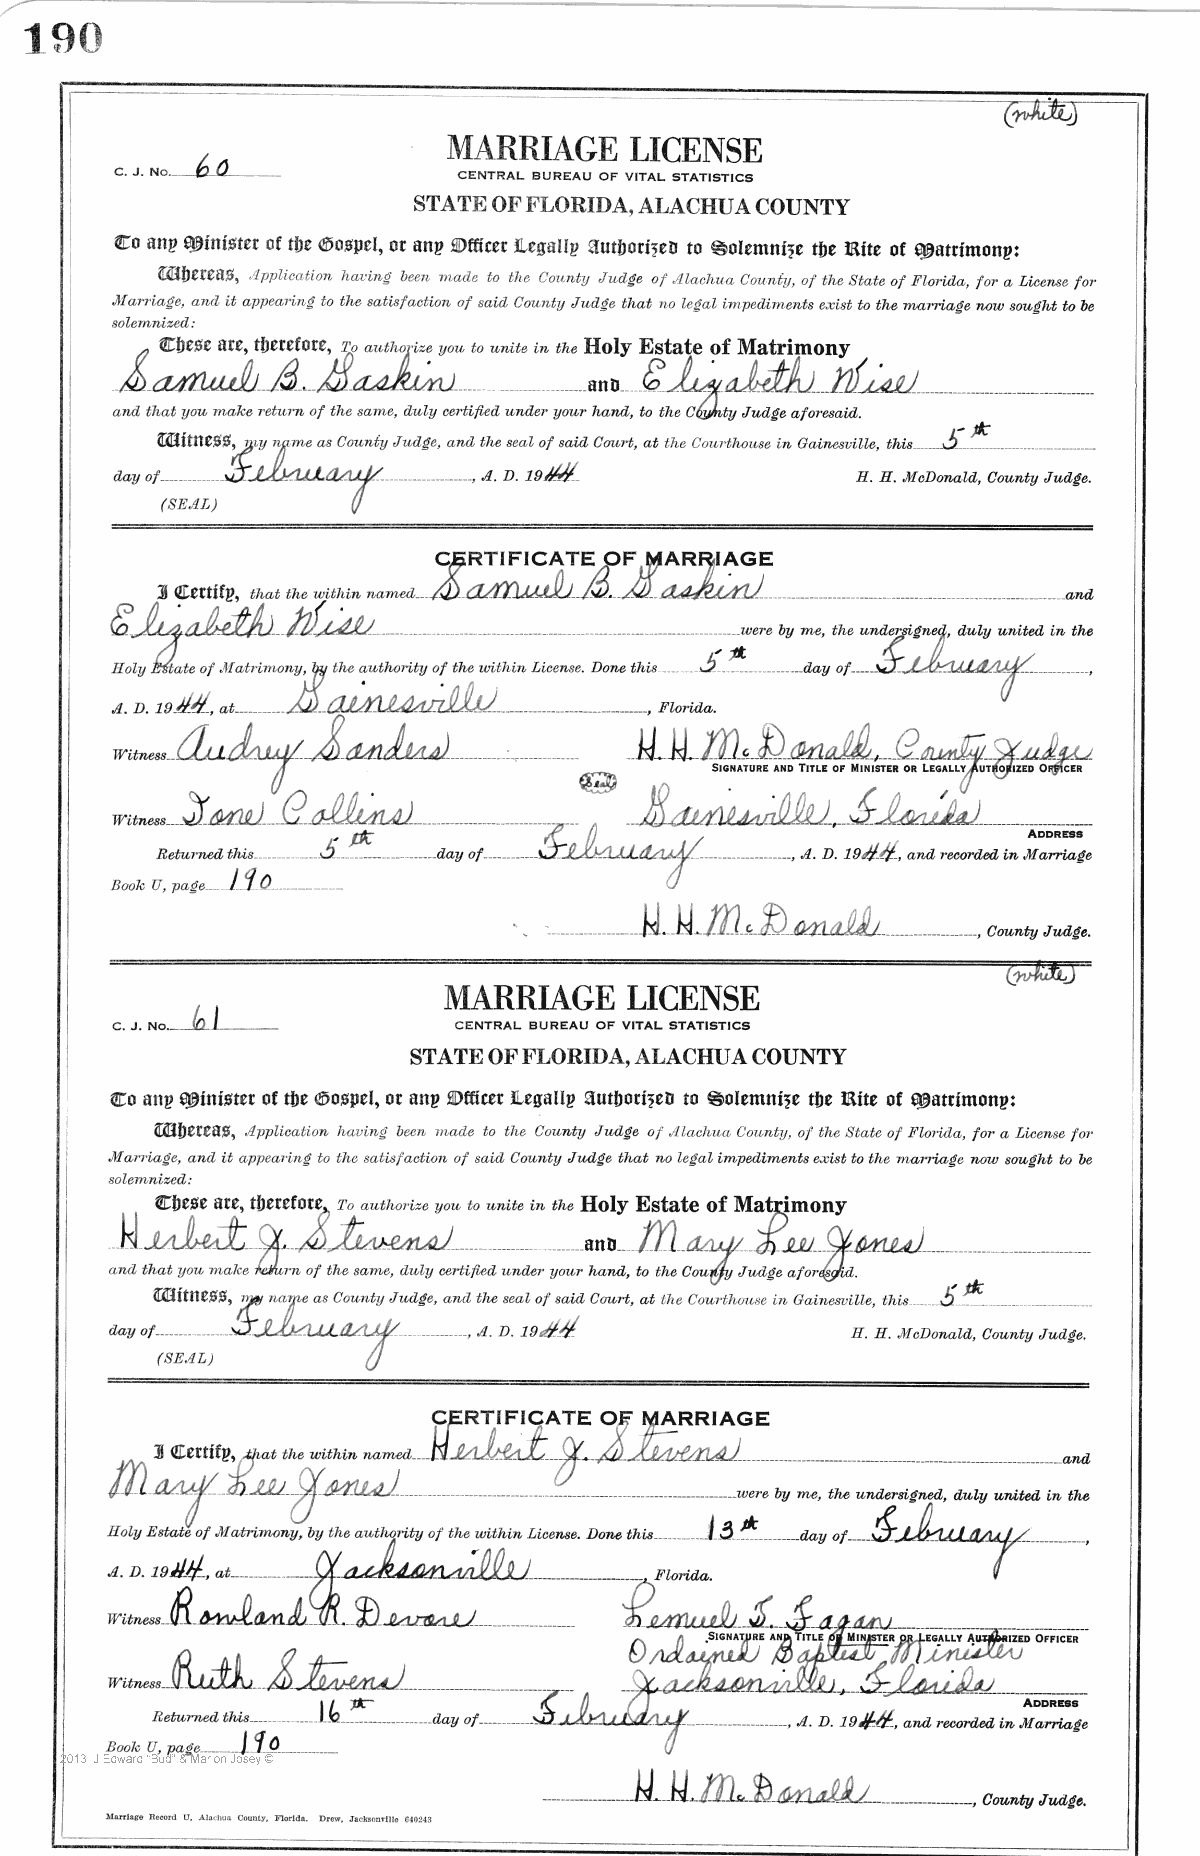 190
(white)
MARRIAGE LICENSE
C. J. No. 60
CENTRAL BUREAU OF VITAL STATISTICS
STATE OF FLORIDA, ALACHUA COUNTY
To any Minister of the Gospel, or any Officer Legally Authorized to Solemnize the Rite of Matrimony:
Whereas, Application having been made to the County Judge of Alachua County, of the State of Florida, for a License for
Marriage, and it appearing to the satisfaction of said County Judge that no legal impediments exist to the marriage now sought to be
solemnized:
These are, therefore, To authorize you to unite in the Holy Estate of Matrimony
Samuel B. Gaskin and Elizabeth Wise
and that you make return of the same, duly certified under your hand, to the County Judge aforesaid.
Witness, my name as County Judge, and the seal of said Court, at the Courthouse in Gainesville, this 5th
day of February, A. D. 1944 H. H. McDonald, County Judge.
(SEAL)
CERTIFICATE OF MARRIAGE
I Certify, that the within named Samuel B. Gaskin and
Elizabeth Wise were by me, the undersigned, duly united in the
Holy Estate of Matrimony, by the authority of the within License. Done this 5th day of February,
A. D. 1944, at Gainesville, Florida.
Witness Audrey Sanders H. H. McDonald, County Judge
SIGNATURE AND TITLE OF MINISTER OR LEGALLY AUTHORIZED OFFICER
Seal
Witness Tone Collins Gainesville, Florida
ADDRESS
Returned this 5th day of February, A. D. 1944, and recorded in Marriage
Book U, page 190
H. H. McDonald, County Judge.
(white)
MARRIAGE LICENSE
C. J. No. 61
CENTRAL BUREAU OF VITAL STATISTICS
STATE OF FLORIDA, ALACHUA COUNTY
To any Minister of the Gospel, or any Officer Legally Authorized to Solemnize the Rite of Matrimony:
Whereas, Application having been made to the County Judge of Alachua County, of the State of Florida, for a License for
Marriage, and it appearing to the satisfaction of said County Judge that no legal impediments exist to the marriage now sought to be
solemnized:
These are, therefore, To authorize you to unite in the Holy Estate of Matrimony
Herbert J. Stevens and Mary Lee Jones
and that you make return of the same, duly certified under your hand, to the County Judge aforesaid.
Witness, my name as County Judge, and the seal of said Court, at the Courthouse in Gainesville, this 5th
day of February, A. D. 1944 H. H. McDonald, County Judge.
(SEAL)
CERTIFICATE OF MARRIAGE
I Certify, that the within named Herbert J. Stevens and
Mary Lee Jones were by me, the undersigned, duly united in the
Holy Estate of Matrimony, by the authority of the within License. Done this 13th day of February,
A. D. 1944, at Jacksonville, Florida.
Witness Rowland R. Devore Lemuel T. Fagan
SIGNATURE AND TITLE OF MINISTER OR LEGALLY AUTHORIZED OFFICER
Ordained Baptist Minister
Witness Ruth Stevens Jacksonville, Florida
ADDRESS
Returned this 16th day of February, A. D. 1944, and recorded in Marriage
Book U, page 190
2013 J Edward "Bud" & Marion Josey ©
H. H. McDonald, County Judge.
Marriage Record U, Alachua County, Florida. Drew, Jacksonville 640243